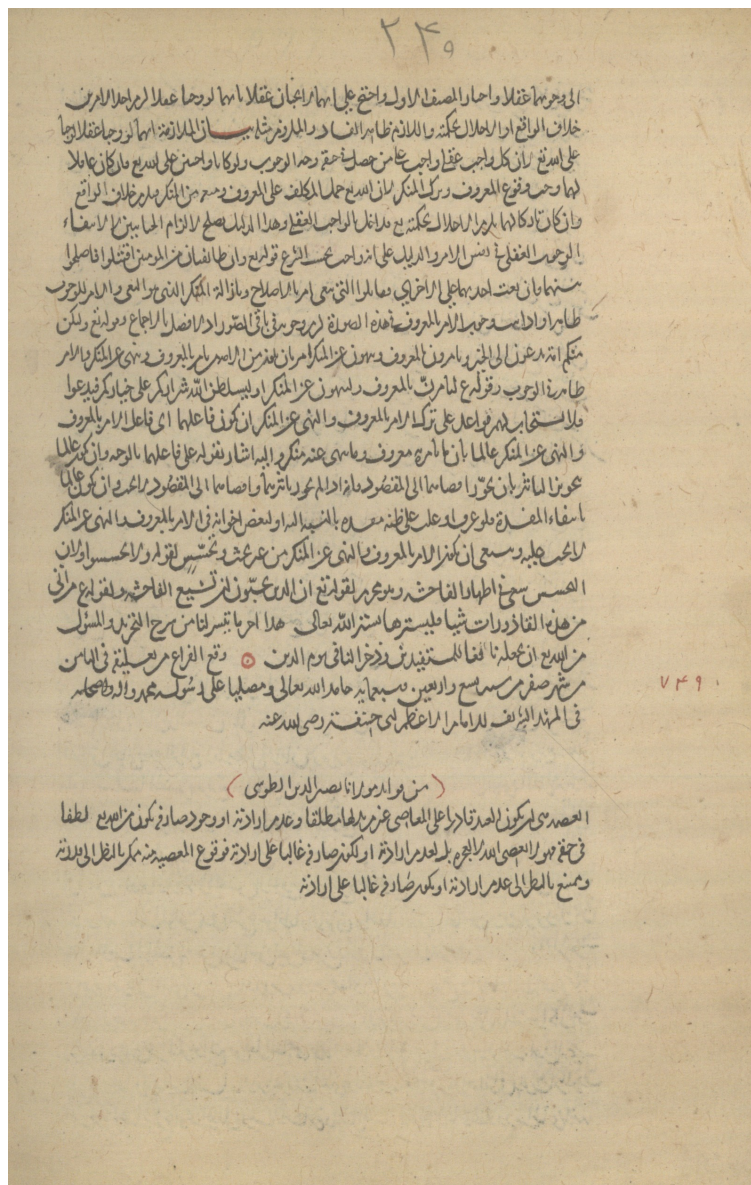 ٢٤٥
الى وجوبهما عقلا واختار المصنف الاول واحتج على انهما لا يجبان عقلا بانهما لو وجبا عقلا لزم احد الامرين
خلاف الواقع او الاخلال بحكمته واللازم ظاهر الفساد والملزوم مثله بيان الملازمة انهما لو وجبا عقلا لوجبا
على الله تع لان كل واجب عقلي واجب على من حصل في حقه وجه الوجوب ولو كانا واجبين على الله تع فان كان فاعلا
لهما وجب وقوع المعروف وترك المنكر لان الله تع حمل المكلف على المعروف ومنعه من المنكر فلزم خلاف الواقع
وان كان تاركا لهما لزم الاخلال بحكمته تع الواجب العقلي وهذا الدليل يصلح لالزام لا لانتفاء
الوجوب العقلي في نفس الامر والدليل على انه واجب بحسب الشرع قوله تع وان طائفتان من المومنين اقتتلوا فاصلحوا
بينهما فان بغت احديهما على الاخرى فقاتلوا التي تبغى امر بالاصلاح وبازالة المنكر الذي هو البغى والامر للوجوب
ظاهرا واذا ثبت وجوب الامر بالمعروف في هذه الصورة لزم وجوبه في باقي الصور اذ لا فصل بالاجماع وقوله تع ولتكن
منكم امة يدعون الى الخير ويامرون بالمعروف وينهون عن المنكر امر بان من يامر بالمعروف وينهى عن المنكر والامر
ظاهر في الوجوب وقوله ع لتامرن بالمعروف ولتنهون عن المنكر او ليسلطن الله شراركم على خياركم فيدعوا
فلا يستجاب لهم على ترك الامر بالمعروف والنهى عن المنكر ان يكون فاعلهما اى فاعل الامر بالمعروف
والنهى عن المنكر عالما بان ما يامر به معروف وما ينهى عنه منكر واليه اشار بقوله على فاعلهما بالوجه وان يكون عالما
بتجويز التاثير بان يجوز افضاءهما الى المقصود فانه اذا لم يجوز تاثيرهما وافضاءهما الى المقصود لا يجب وان يكون عالما
بانتفاء المفسدة فلو عرف او غلب على ظنه مفسدة بالنسبة اليه او لبعض اخوانه في الامر بالمعروف والنهى عن المنكر
لا يجب عليه وينبغى ان يكون الامر بالمعروف والنهى عن المنكر من غير بحث وتجسس لقوله ولا تجسسوا ولان
التجسس سعى في اظهار الفاحشة وهو محرم لقوله تع ان الذين يحبون ان تشيع الفاحشة ولقوله ع من اتى
من هذه القاذورات شيئا فليسترها ستره الله تعالى هذا اخر ما تيسر لنا من شرح التجريد والمسؤل
من الله تع ان يجعله نافعا للمستفيدين وذخرا لنا في يوم الدين وقع الفراغ من تعليقه في الثامن
من شهر صفر من سنه تسع واربعين وسبعمايه حامدا لله تعالى ومصليا على رسوله محمد واله واصحابه
٧٤٩
في المشهد الشريف للامام الاعظم ابى حنيفة رضي الله عنه
(من فوائد مولانا نصير الدين الطوسى)
العصمة هى ان يكون العبد قادرا على المعاصى غير مريد لها مطلقا وعدم ارادته او وجود صارفه يكون من الله تع لطفا
في حقه فهو لا يعصى الله لا لعجزه بل لعدم ارادته او لكون صارفه غالبا على ارادته فوقوع المعصية منه ممكن بالنظر الى قدرته
وممتنع بالنظر الى عدم ارادته او لكون صارفه غالبا على ارادته